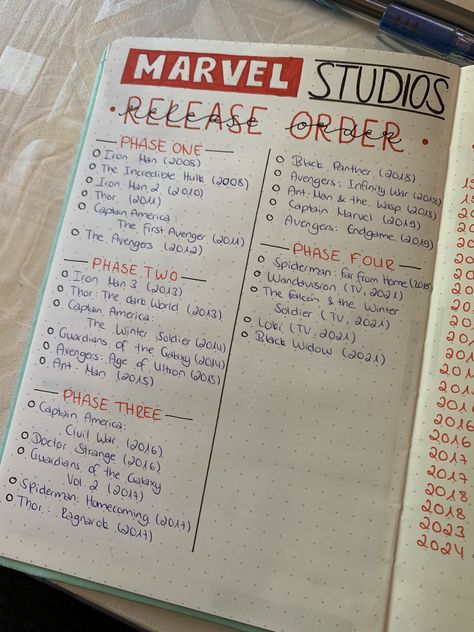 MARVEL STUDIOS
RELEASE ORDER
release order
PHASE ONE
Iron Man (2008)
The Incredible Hulk (2008)
Iron Man 2 (2010)
Thor (2011)
Captain America:
The First Avenger (2011)
The Avengers (2012)
PHASE TWO
Iron Man 3 (2013)
Thor: The dark World (2013)
Captain America:
The Winter Soldier (2014)
Guardians of the Galaxy (2014)
Avengers: Age of Ultron (2015)
Ant-Man (2015)
PHASE THREE
Captain America:
Civil War (2016)
Doctor Strange (2016)
Guardians of the Galaxy
Vol. 2 (2017)
Spiderman: Homecoming (2017)
Thor: Ragnarok (2017)
Black Panther (2018)
Avengers: Infinity War (2018)
Ant-Man & the Wasp (2018)
Captain Marvel (2019)
Avengers: Endgame (2019)
PHASE FOUR
Spiderman: far from Home
Wandavision (TV, 2021)
The Falcon & the Winter
Soldier (TV, 2021)
Loki (TV, 2021)
Black Widow (2021)
2016
2017
2017
2018
2018
2023
2024